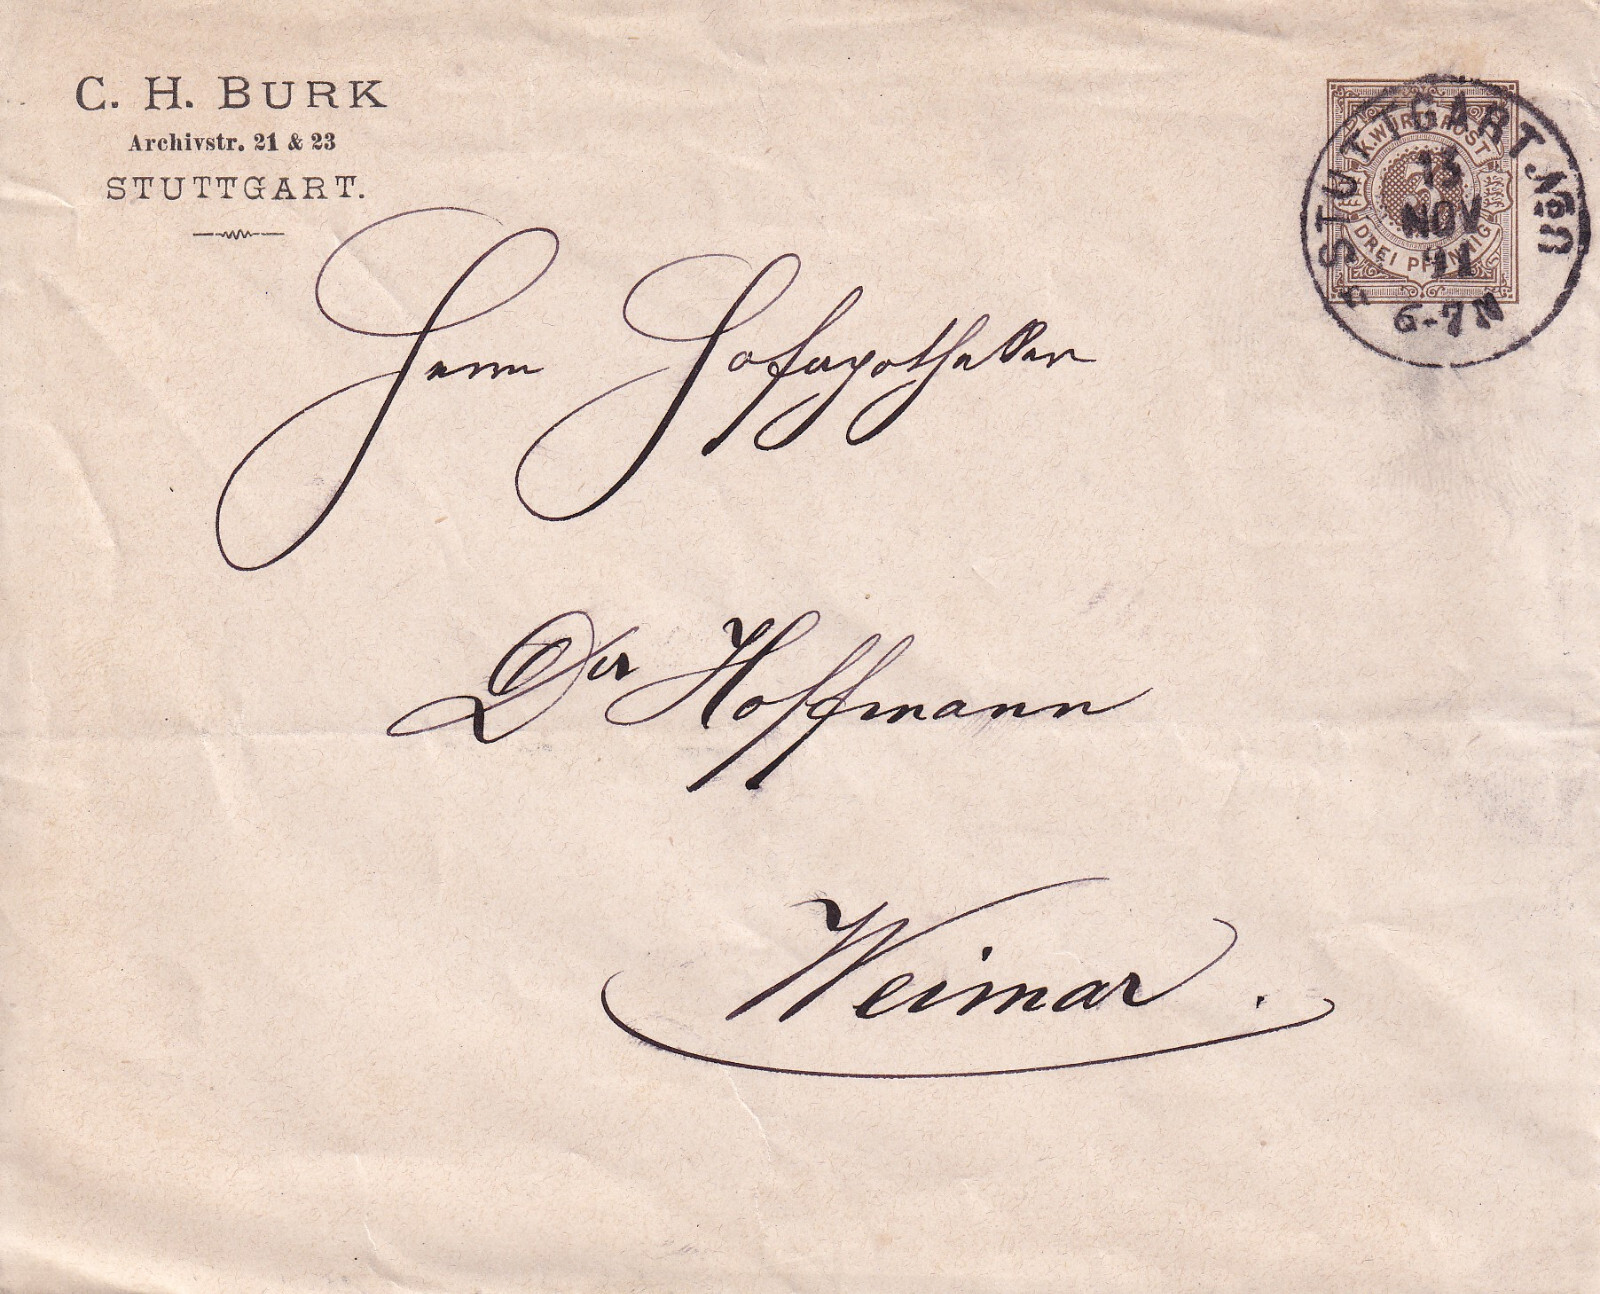 C. H. BURK
Archivstr. 21 & 23
STUTTGART.
K. WÜRTT. POST
3
DREI PFENNIG
STUTTGART. №
13
NOV
91
6-7 N
Herrn Hofapotheker
Dr Hoffmann
Weimar.